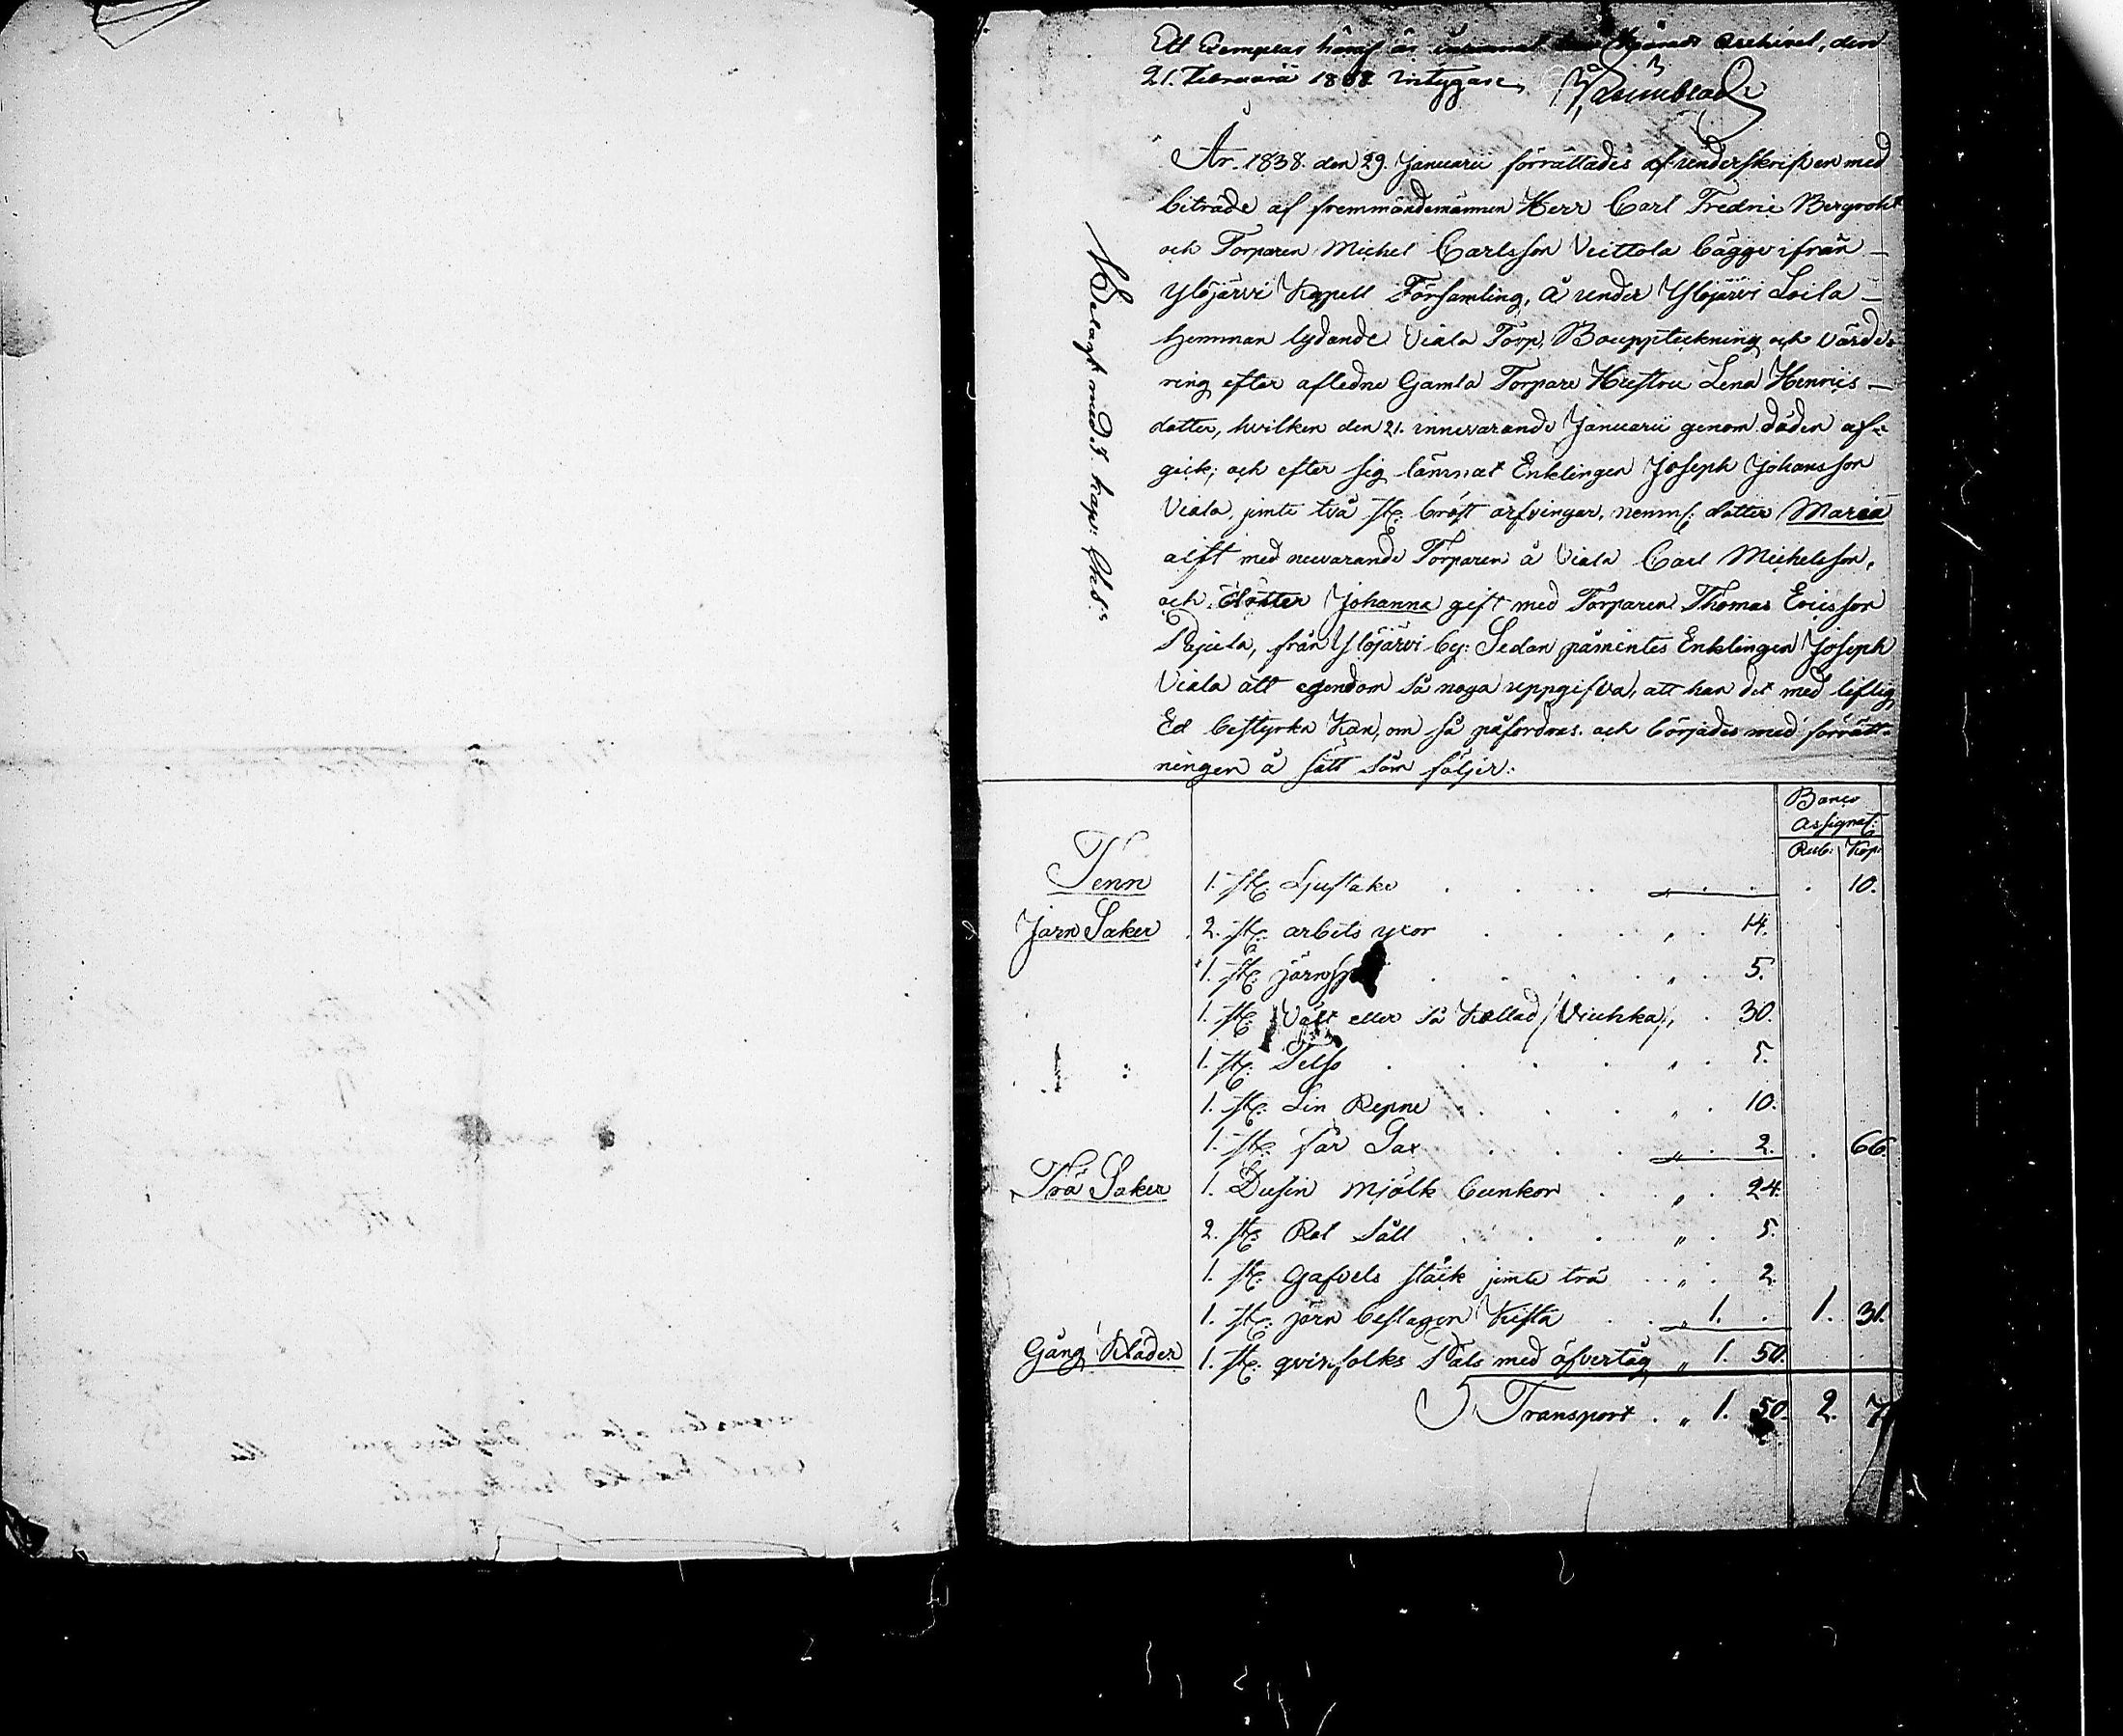 Ett Exemplar häraf är Härads Archivet, den
21. Februarii 18 intygar
År 1838. den 29. Januarii förrättades af underskrifven med
biträde af fremmandemännen Herr Carl Fredric Bergroht
och Torparen Michel Carlsson Vittola bägge ifrån
Ylöjärvi Kapell Församling, å under Ylöjärvi Loila
hemman lydande Viala Torp, Bouppteckning och värde-
ring efter afledne Gamla Torpare Hustru Lena Henrics
dotter, hvilken den 21. innevarande Januarii genom döden af-
gick; och efter sig lämnat Enklingen Joseph Johansson
Viala, jemte två st: bröst arfvingar, neml: dotter Maria
gift med nuvarande Torparen å Viala Carl Michelsson,
och dotter Johanna gift med Torparen Thomas Ericsson
Pajula, från Ylöjärvi by: Sedan påmintes Enklingen Joseph
Viala att egendom så noga uppgifva, att han det med liflig
Ed bestyrka kan, om så påfordras. och börjades med förrätt-
ningen å sätt som följer:
Belagt med kap:
Banco
Assignat:
Rub: Kop:
Tenn 1. st: Ljustake " . . 10.
Jarn Saker 2. st: arbets yxor " 14.
1. st: järn " 5.
1. st: eller så kallad /Viuhka/ " 30.
1. st: Telso " 5.
1. st: Lin Repne " 10.
1. st: får Sax " 2. . 66.
Trä Saker 1. Dusin mjölk bunkor " 24.
2. st: Säll " 5.
1. st: Gafvels stäck jemte trä " 2.
1. st: järn beslagen Kista " 1. . 1. 31.
Gång Kläder 1. st: qvinfolks Päls med öfvertåg " 1. 50.
Transport . " 1. 50. 2. 7.